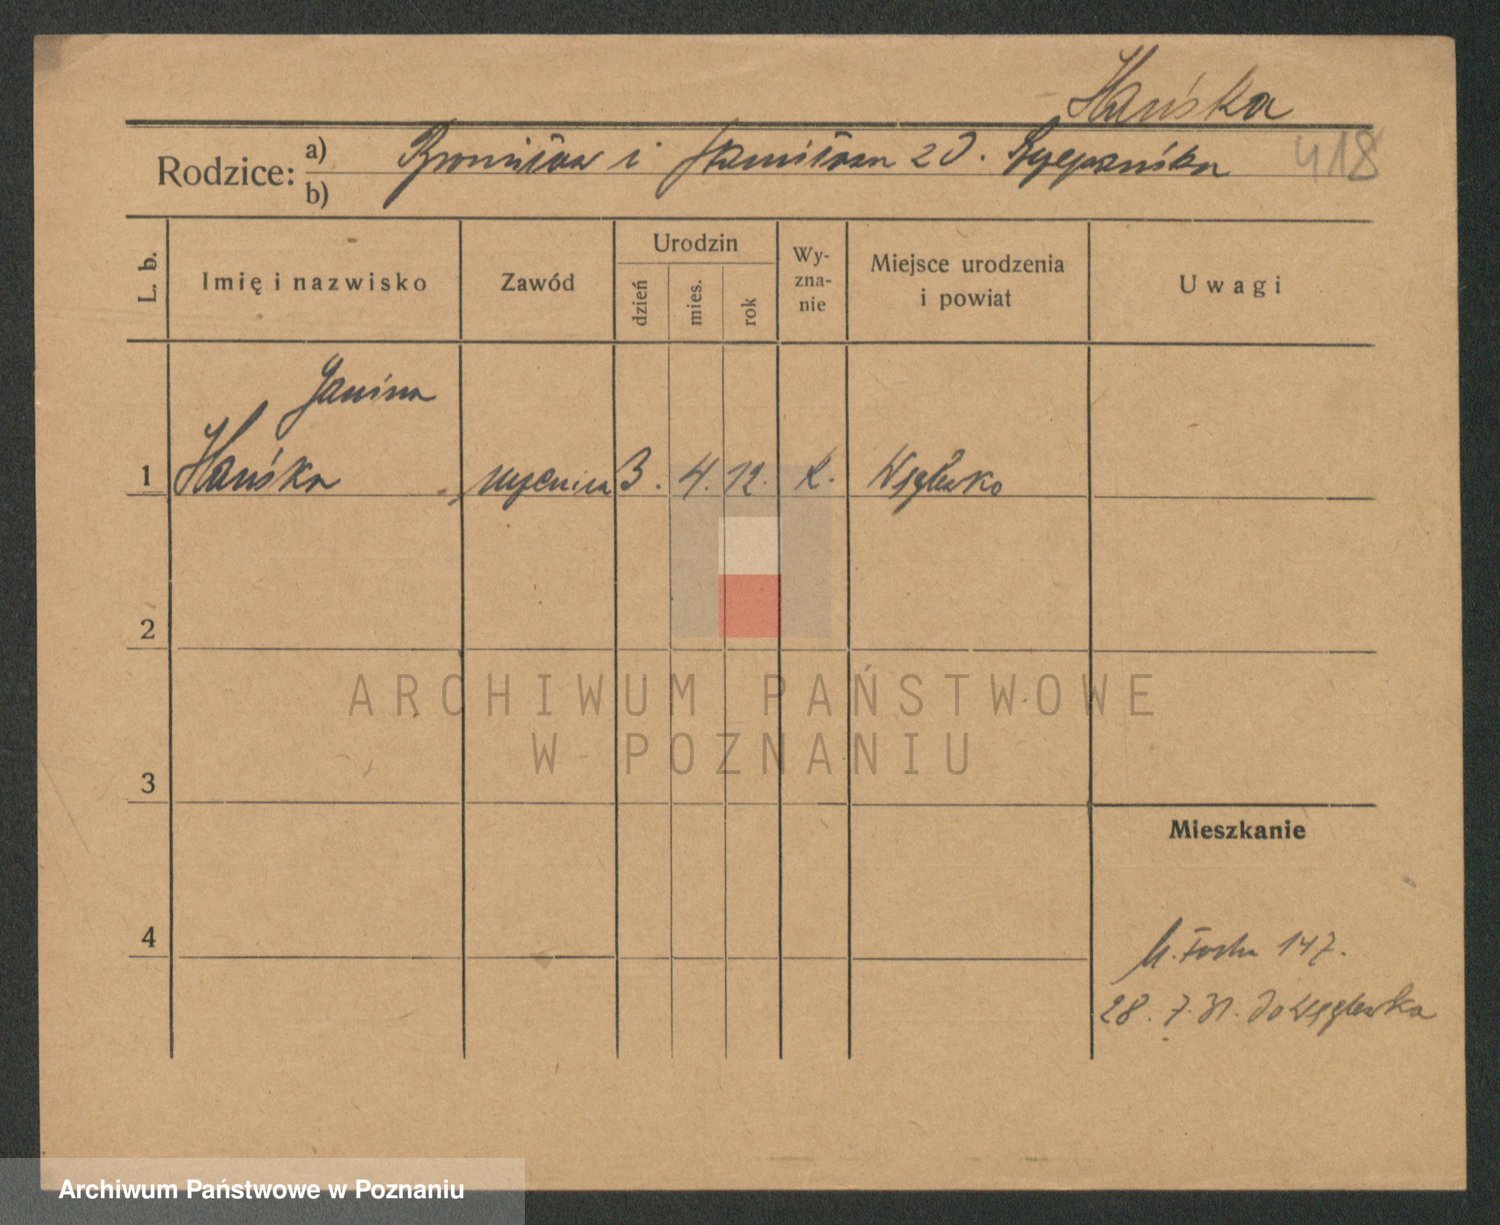 Hańska
Rodzice: a) Bronisław i Stanisława zd. Szczepańska 418
b)
L. b.
Imię i nazwisko
Zawód
Urodzin
dzień
mies.
rok
Wy-
zna-
nie
Miejsce urodzenia
i powiat
Uwagi
Janina
1 Hańska uczenica 3. 4. 12. k. Węglewko
2
3
4
Mieszkanie
147.
28. 7. 31. do Węglewka
ARCHIWUM PAŃSTWOWE
W POZNANIU
Archiwum Państwowe w Poznaniu